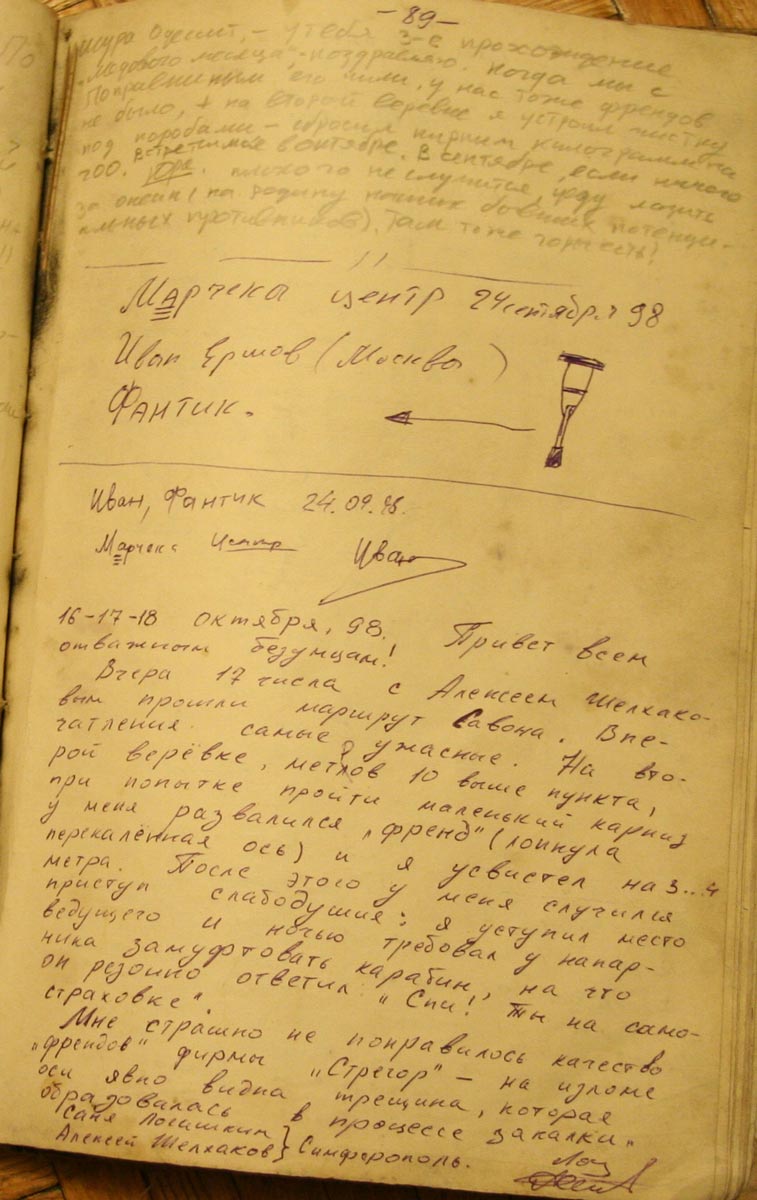 - 89 -
Шура Одессит, - у тебя 3-е прохождение
„Медового месяца", - поздравляю. Когда мы с
Поправкиным его лили, у нас тоже френдов
не было, + на второй верёвке я устроил чистку
под коробами - сбросил кирпич килограмм на
200. Встретимся в октябре. В сентябре, если ничего
Юра. плохого не случится, еду лазить
за океан (на родину наших бывших потенци-
альных противников). Там тоже горы есть!
Марчека центр 24 сентября 98
Иван Ершов (Москвы)
Фантик.
Иван, Фантик 24.09.98.
Марчека Центр Иван
16-17-18 октября, 98. Привет всем
отважным безумцам!
Вчера 17 числа с Алексеем Шелхако-
вым прошли маршрут Савона. Впе-
чатления самые ужасные. На вто-
рой верёвке, метров 10 выше пункта,
при попытке пройти маленький карниз
у меня развалился „френд" (лопнула
перекалённая ось) и я усвистел на 3...4
метра. После этого у меня случился
приступ слабодушия: я уступил место
ведущего и ночью требовал у напар-
ника замуфтовать карабин, на что
он резонно ответил "Спи! Ты на само-
страховке".
Мне страшно не понравилось качество
„френдов" фирмы „Стрегор" - на изломе
оси явно видна трещина, которая
образовалась в процессе закалки.
Саня Логашкин
Алексей Шелхаков } Симферополь.